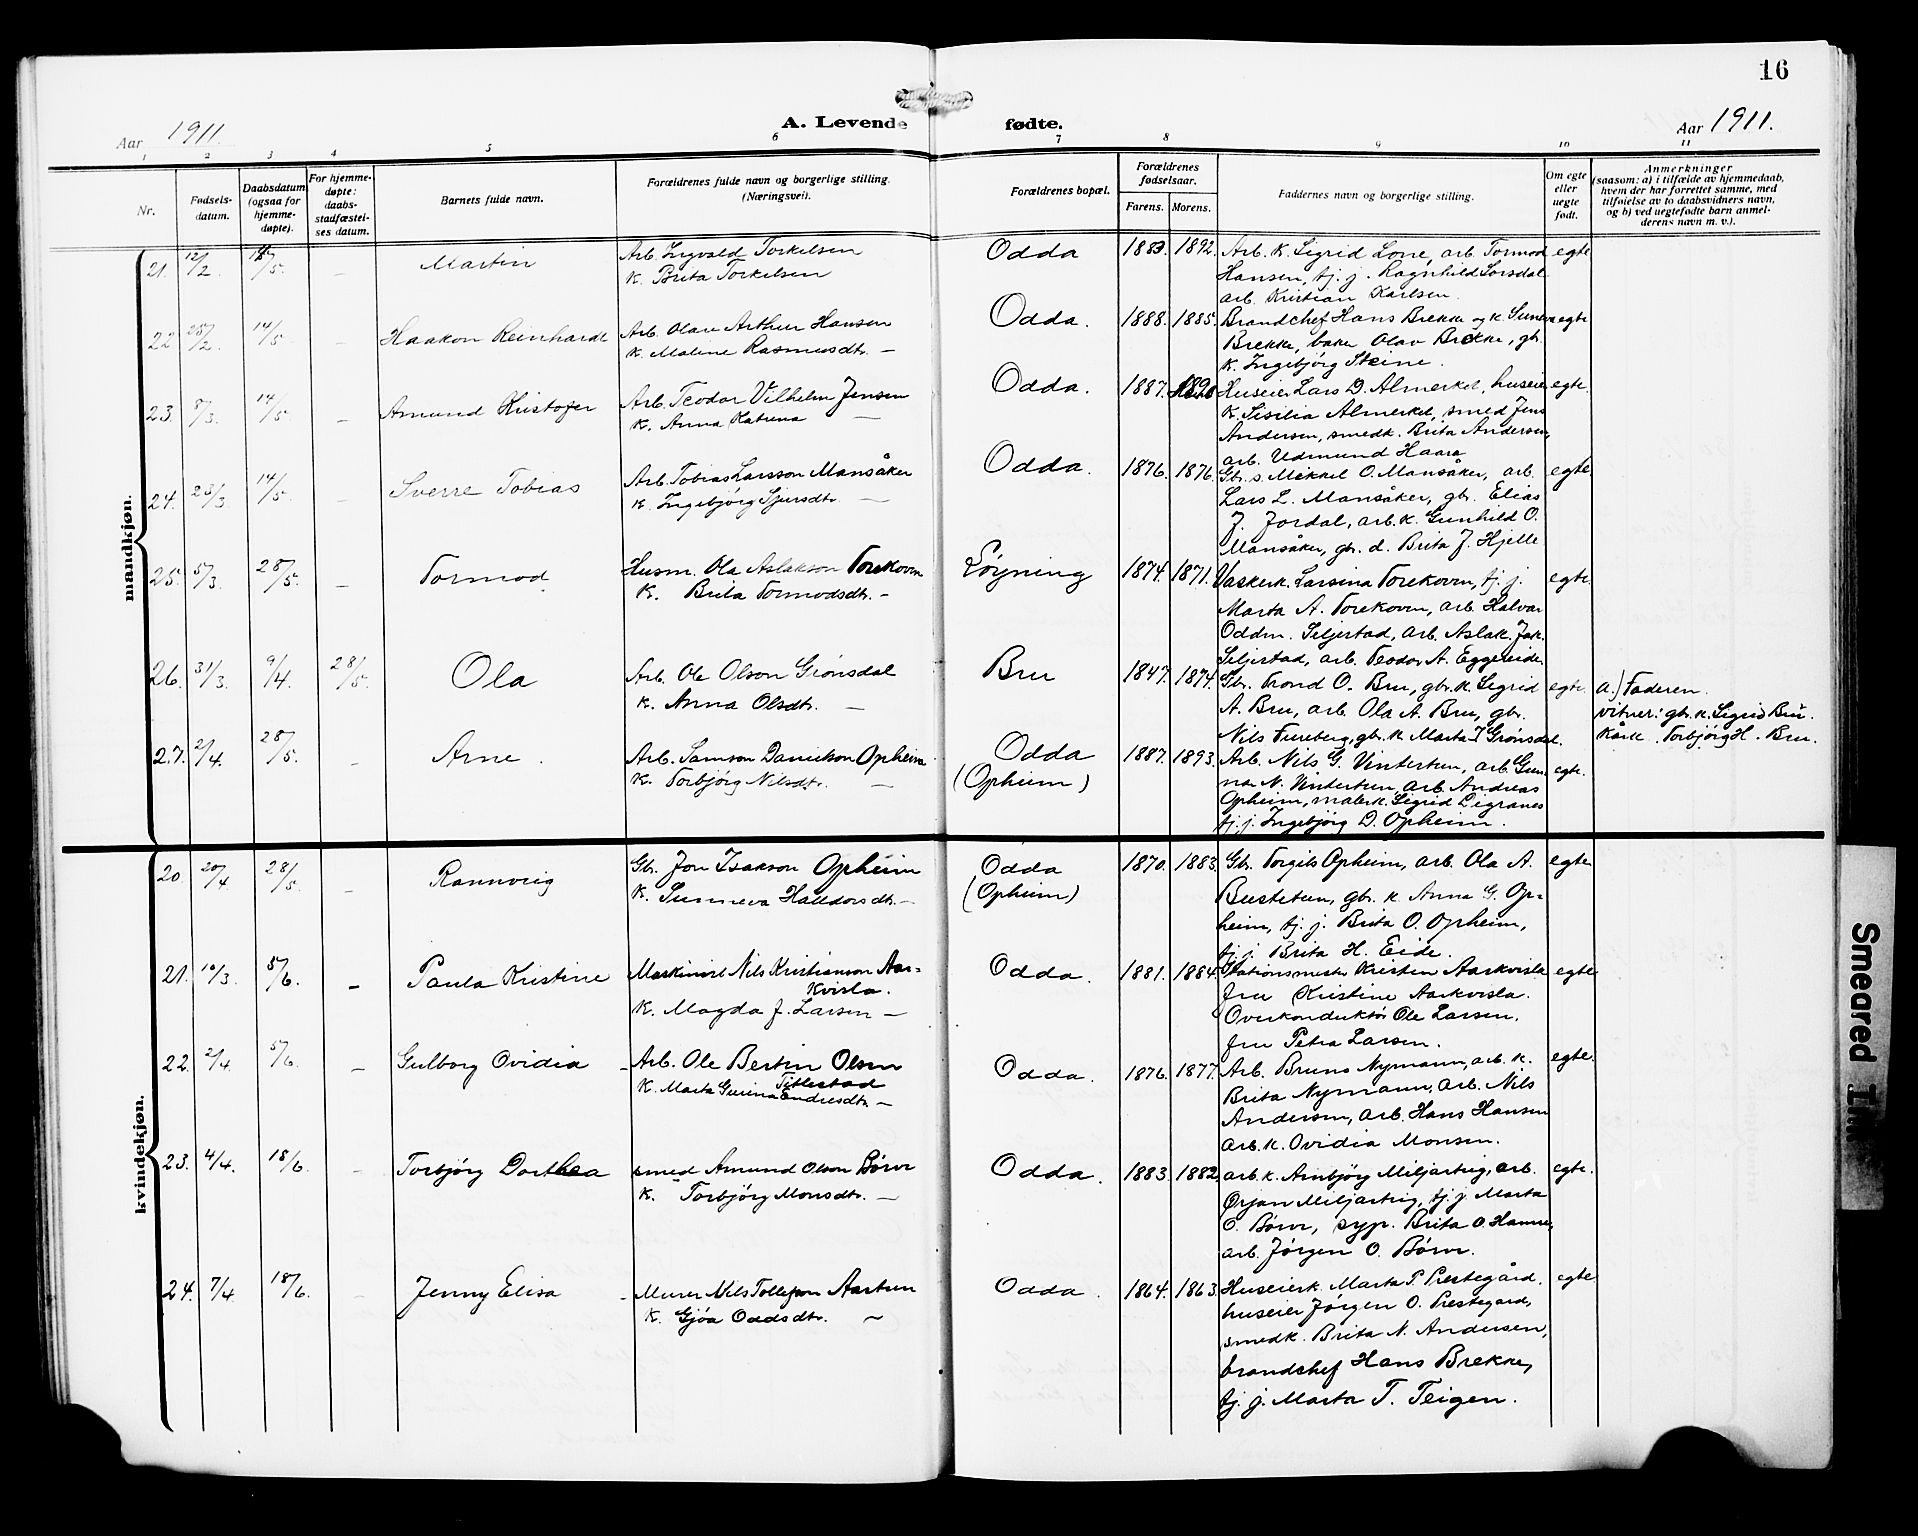 16
Aar 1911.
A. Levende fødte.
Aar 1911.
1 2 3 4 5 6 7 8 9 10 11
Nr.
Fødsels-
datum.
Daabsdatum
(ogsaa for
hjemme-
døpte).
For hjemme-
døpte:
daabs-
stadfæstel-
ses datum.
Barnets fulde navn.
Forældrenes fulde navn og borgerlige stilling.
(Næringsvei).
Forældrenes bopæl.
Forældrenes
fødselsaar.
Farens. Morens.
Faddernes navn og borgerlige stilling.
Om egte
eller
uegte
født.
Anmerkninger
(saasom: a) i tilfælde av hjemmedaab,
hvem der har forrettet samme, med
tilføielse av to daabsvidners navn,
og b) ved uegtefødte barn anmel-
derens navn m. v.).
mandkjøn.
21. 12/2 /5. – Martin
Arb. Ingvald Torkelsen
K. Brita Torkelsen
Odda 1883. 1892.
Arb. K. Sigrid Lone, arb. Tormod
Hansen, tj. j. Ragnhild Sorsdal
arb. Kristian Karlsen.
egte
22. 25/2. 14/5. – Haakon Reinhardt
Arb. Olav Arthur Hansen
K. Maline Rasmusdtr. –
Odda. 1888. 1885.
Brandchef Hans Brekke og K. Suneva
Brekke, baker Olav Brekke, gb.
K. Ingebjørg Steine.
egte
23. 8/3. 14/5. – Amund Kristofer
Arb. Teodor Vilhelm Jensen
K. Anna Katrina –
Odda. 1887. 1890
Huseier Lars D. Almerket, huseier
K. Sisilia Almerket, smed Jens
Andersen, smedk. Brita Andersen,
arb. Udmund Haara
egte.
24. 23/3. 14/5. – Sverre Tobias
Arb. Tobias Larsson Mansåker
K. Ingebjørg Sjursdtr. –
Odda. 1876. 1876.
Gbr. s. Mikkel O. Mansåker, arb.
Lars L. Mansåker, gbr. Elias
J. Jordal, arb. K. Gunhild O.
Mansåker, gbr. d. Brita J. Hjelle
egte.
25. 5/3. 28/5. – Tormod
Husm. Ola Aslakson Torekoven
K. Brita Tormodsdtr. –
Løyning 1874. 1871.
Vaskerk. Larsina Torekoven, tj. j.
Marta A. Torekoven, arb. Halvar
Oddm. Seljestad, arb. Aslak Jak.
Seljestad, arb. Teodor A. Eggereide.
egte.
26. 31/3. 9/4. 28/5. Ola
Arb. Ole Olson Grønsdal
K. Anna Olsdtr. –
Bru 1847. 1874.
Gbr. Trond O. Bru, gbr. K. Sigrid
A. Bru, arb. Ola A. Bru, gbr.
Nils Tureberg, gbr. K. Marta T Grønsdal.
egte.
a.) Faderen.
vitner: gbr. K. Sigrid Bru.
Torbjørg H. Bru.
27. 2/4. 28/5. – Arne.
Arb. Samson Danielson Opheim
K. Torbjørg Nilsdtr. –
Odda
(Opheim)
1887. 1893.
Arb. Nils G. Vintertun, arb. Gun-
nar N. Vintertun, arb. Andreas
Opheim, malerk. Sigrid Digranes
tj. j. Ingebjørg D. Opheim.
egte.
kvindekjøn.
20. 20/4 28/5. – Rannveig
Gb. Jon Isakson Opheim
K. Sunneva Halldorsdtr. –
Odda
(Opheim)
1870. 1883.
Gbr. Torgils Opheim, arb. Ola A.
Bustetun, gbr. K. Anna G. Op-
heim, tj. j. Brita O. Opheim,
tj. j. Brita H. Eide.
egte
21. 10/3. 5/6. – Paula Kristine
Maskinist Nils Kristianson Aar-
kvisla.
K. Magda J. Larsen –
Odda. 1881. 1884.
Stationsmester Kristen Aarkvisla
fru Kristine Aarkvisla.
Overkonduktør Ole Larsen.
fru Petra Larsen.
egte
22. 2/4. 5/6. – Gulborg Ovidia
Arb. Ole Bertin Olsen
Titlestad
K. Marta Gurina Endresdtr. –
Odda. 1876. 1877.
Arb. Bruns Nymann, arb. K.
Brita Nymann, arb. Nils
Andersen, arb. Hans Hansen
arb. K. Ovidia Monsen.
egte.
23. 4/4. 18/6. – Torbjørg Dorthea
smed Amund Olson Børve
K. Torbjørg Monsdtr. –
Odda. 1883. 1882
arb. K. Arnbjørg Miljarteig, arb.
Ørjan Miljarteig, tj. j. Marta
O. Børve, syp. Brita O. Hamre,
arb. Jørgen O. Børve.
egte.
24. 7/4. 18/6. – Jenny Elisa
Murer Nils Tollefson Aartun
K. Gjøa Oddsdtr. –
Odda. 1864. 1863.
Huseierk. Marta P. Prestegård,
huseier Jørgen O. Prestegard,
smedk. Brita N. Andersen,
brandchef Hans Brekke,
tj. j. Marta T. Teigen.
egte
Smeared